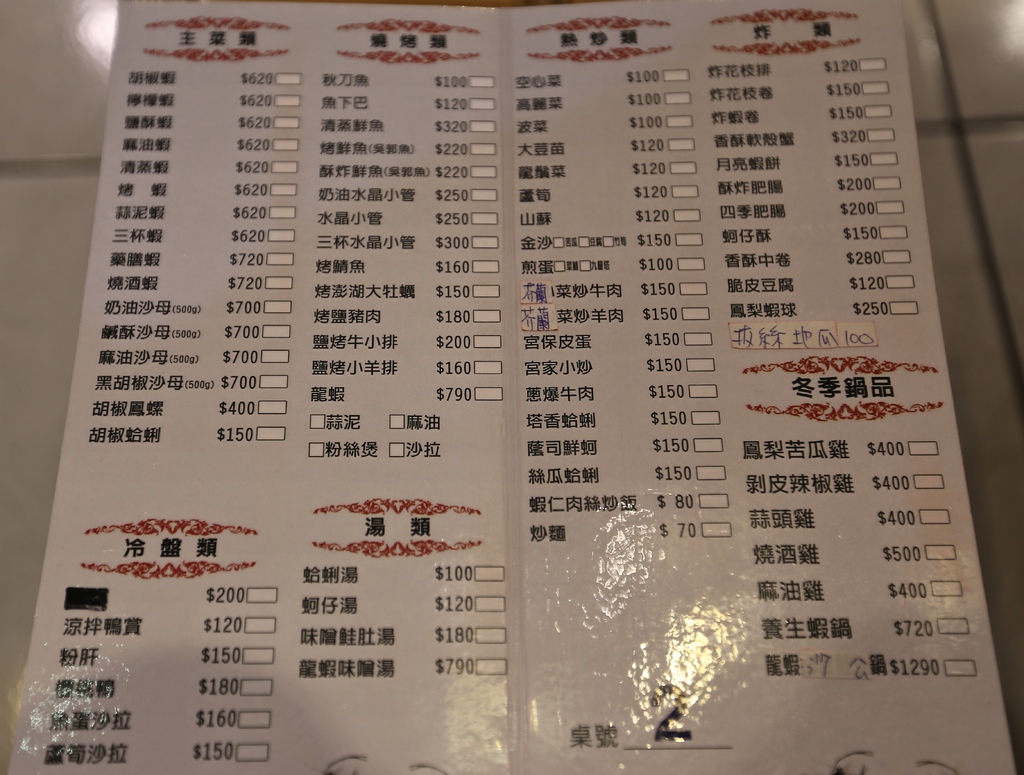 主菜類
胡椒蝦 $620
檸檬蝦 $620
鹽酥蝦 $620
麻油蝦 $620
清蒸蝦 $620
烤 蝦 $620
蒜泥蝦 $620
三杯蝦 $620
藥膳蝦 $720
燒酒蝦 $720
奶油沙母(500g) $700
鹹酥沙母(500g) $700
麻油沙母(500g) $700
黑胡椒沙母(500g) $700
胡椒鳳螺 $400
胡椒蛤蜊 $150
冷盤類
$200
涼拌鴨賞 $120
粉肝 $150
$180
魚蛋沙拉 $160
蘆筍沙拉 $150
燒烤類
秋刀魚 $100
魚下巴 $120
清蒸鮮魚 $320
烤鮮魚(吳郭魚) $220
酥炸鮮魚(吳郭魚) $220
奶油水晶小管 $250
水晶小管 $250
三杯水晶小管 $300
烤鯖魚 $160
烤澎湖大牡蠣 $150
烤鹽豬肉 $180
鹽烤牛小排 $200
鹽烤小羊排 $160
龍蝦 $790
□蒜泥 □麻油
□粉絲煲 □沙拉
湯類
蛤蜊湯 $100
蚵仔湯 $120
味噌鮭肚湯 $180
龍蝦味噌湯 $790
熱炒類
空心菜 $100
高麗菜 $100
波菜 $100
大荳苗 $120
龍鬚菜 $120
蘆筍 $120
山蘇 $120
金沙□苦瓜□豆腐□竹筍 $150
煎蛋□菜脯□九層塔 $100
芥蘭菜炒牛肉 $150
芥蘭菜炒羊肉 $150
宮保皮蛋 $150
宮家小炒 $150
蔥爆牛肉 $150
塔香蛤蜊 $150
蔭司鮮蚵 $150
絲瓜蛤蜊 $150
蝦仁肉絲炒飯 $ 80
炒麵 $ 70
炸 類
炸花枝排 $120
炸花枝卷 $150
炸蝦卷 $150
香酥軟殼蟹 $320
月亮蝦餅 $150
酥炸肥腸 $200
四季肥腸 $200
蚵仔酥 $150
香酥中卷 $280
脆皮豆腐 $120
鳳梨蝦球 $250
拔絲地瓜100
冬季鍋品
鳳梨苦瓜雞 $400
剝皮辣椒雞 $400
蒜頭雞 $400
燒酒雞 $500
麻油雞 $400
養生蝦鍋 $720
龍蝦沙公鍋 $1290
桌號 2